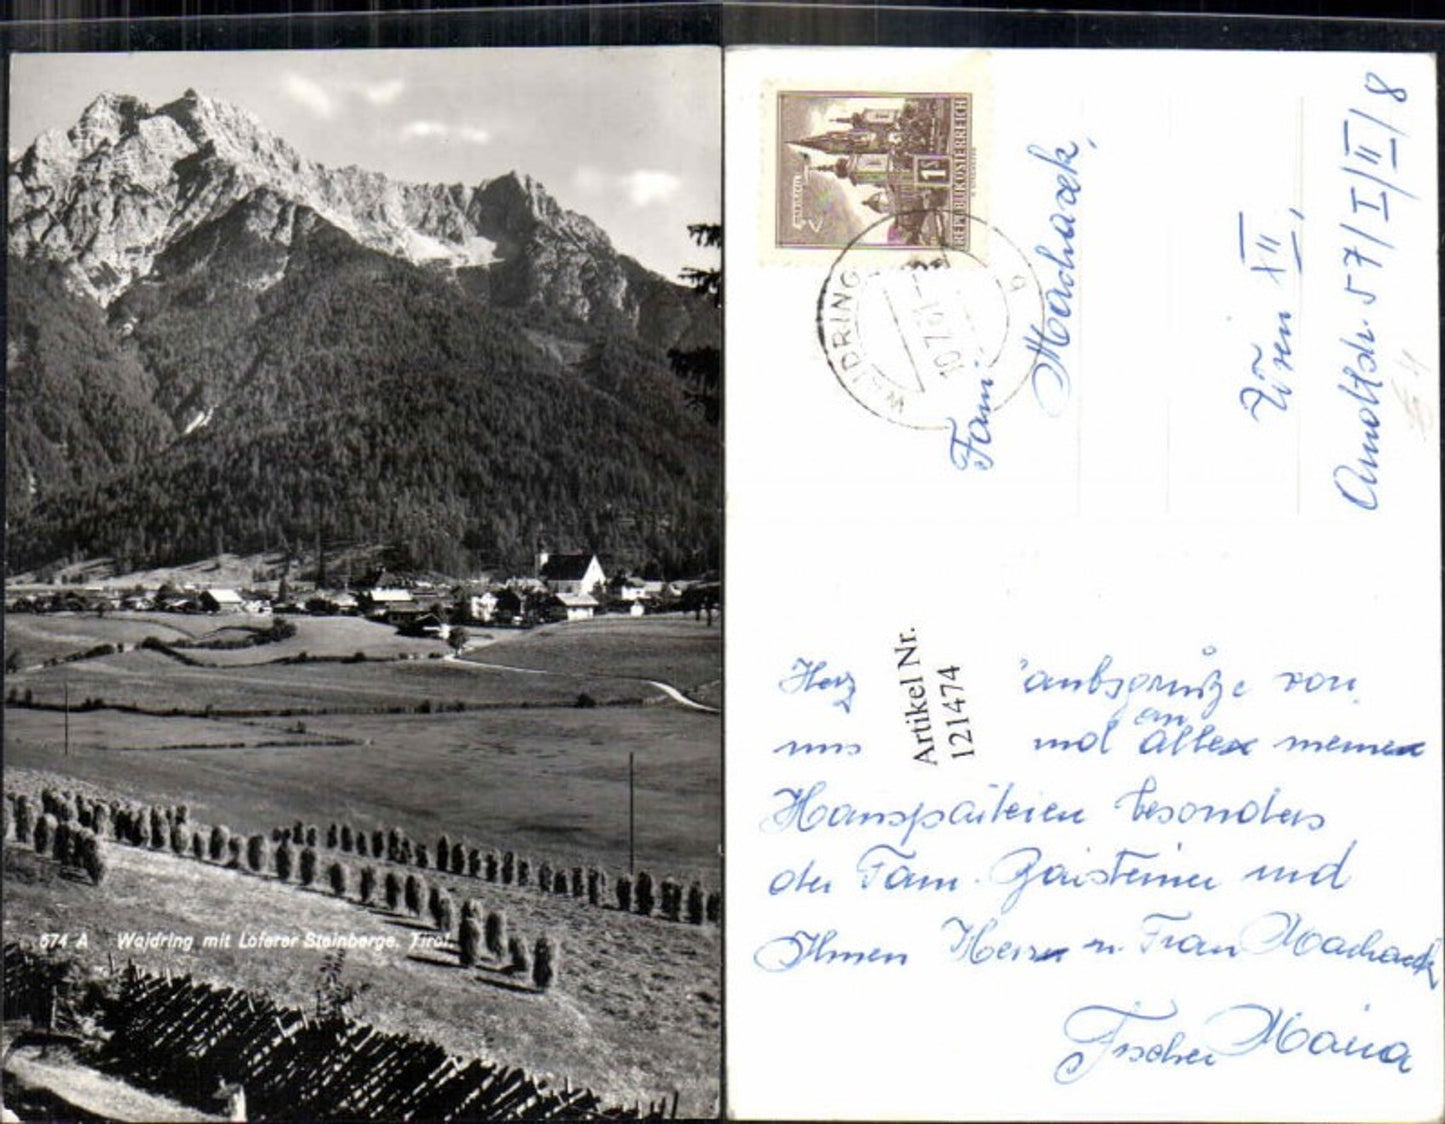 574 A Waidring mit Loferer Steinberge. Tirol
1 S
REPUBLIK ÖSTERREICH
MARIAZELL
WAIDRING
10.7.61
b
Fam.
Machacek,
Wien XII,
Arndtstr. 57/I/II/8
Artikel Nr.
121474
Herz aubsgrüße von
uns und an alle meine
Hausparteien besonders
der Fam. und
Ihnen Herrn u. Frau Machacek
Fischer Maria